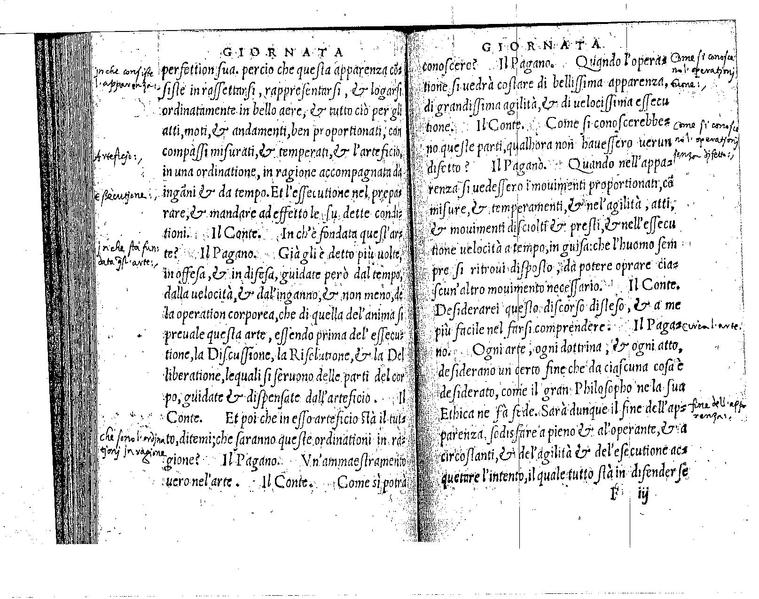 GIORNATA
perfettion sua. percio che questa apparenza cõ-
siste in rassettarsi, rappresentarsi, & logarsi
ordinatamente in bello aere, & tutto ciò per gli
atti, moti, & andamenti, ben proportionati, con
compassi misurati, & temperati, & l'arteficio,
in una ordinatione, in ragione accompagnata da
ingãni & da tempo. Et l'essecutione nel prepa-
rare, & mandare ad effetto le su dette condi-
tioni. Il Conte. In ch'è fondata quest'ar-
te? Il Pagano. Già gli è detto più uolte,
in offesa, & in difesa, guidate però dal tempo,
dalla uelocità, & dal'inganno, & non meno, de
la operation corporea, che di quella del'anima si
preuale questa arte, essendo prima del'essecu-
tione, la Discussione, la Risolutione, & la Del
liberatione, lequali si seruono delle parti del cor
po, guidate & dispensate dall'arteficio. Il
Conte. Et poi che in esso arteficio stà il tut-
to, ditemi; che saranno queste ordinationi in ra-
gione? Il Pagano. Vn'ammaestramento
uero nel'arte. Il Conte. Come si potrà
in che consiste
l'apparenza:
Arteficio:,
Essecutione:,
in che stà fun
data quest'arte:,
che sono l'ordina
tioni in ragione
GIORNATA
conoscere? Il Pagano. Quando l'opera-
tione si uedrà costare di bellissima apparenza,
di grandissima agilità, & di uelocissima essecu
tione. Il Conte. Come si conoscerebbe-
no queste parti, qualhora non hauessero uerun
difetto? Il Pagano. Quando nell'appa-
renza si uedessero i mouimenti proportionati, cõ
misure, & temperamenti, & nel'agilità, atti,
& mouimenti disciolti & presti, & nell'essecu
tione uelocità a tempo, in guisa: che l'huomo sem
pre si ritroui disposto, da potere oprare cia-
scun'altro mouimento necessario. Il Conte.
Desiderarei questo discorso disteso, & a me
più facile nel farsi comprendere. Il Paga-
no. Ogni arte, ogni dottrina, & ogni atto,
desiderano un certo fine che da ciascuna cosa è
desiderato, come il gran Philosopho ne la sua
Ethica ne fà fede. Sarà dunque il fine dell'ap-
parenza, sodisfare a pieno & al'operante, & a
circostanti, & del'agilità & del'esecutione ac-
quetare l'intento, il quale tutto stà in difender se
F iij
Come si conosce
no l'operationi
Come si conosce
no l'operationi
senza difetti:,
circa l'arte.
fine dell'appa
renza:.